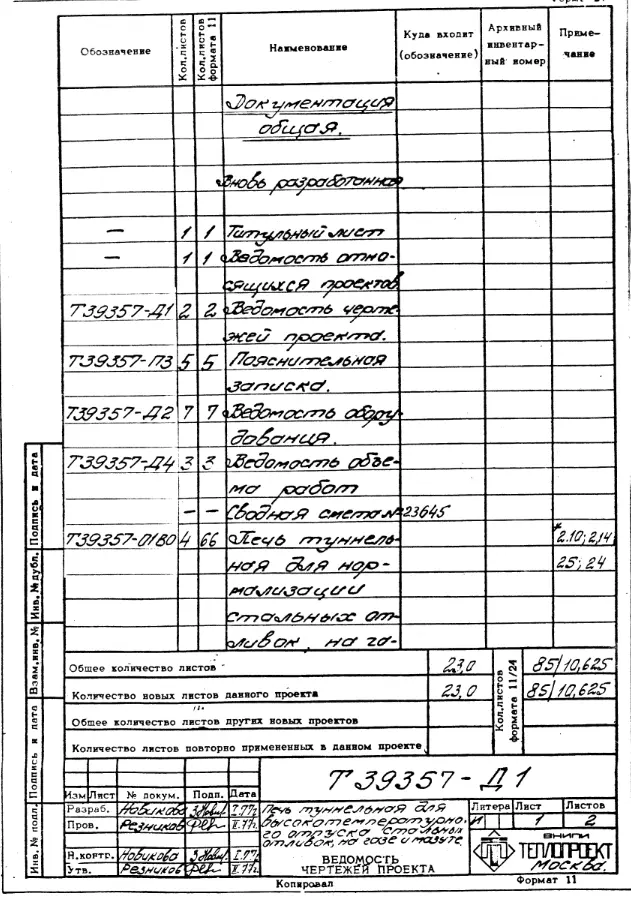 Обозначение Кол.листов Кол.листов формата 11 Наименование Куда входит (обозначение) Архивный инвентар-ный номер Приме-чание
Документация
общая.
Вновь разработанная
— 1 1 Титульный лист
— 1 1 Ведомость отно-
сящихся проектов
Т39357-Д1 2 2 Ведомость черте-
жей проекта.
Т39357-ПЗ 5 5 Пояснительная
записка.
Т39357-Д2 7 7 Ведомость обору-
дования.
Т39357-Д4 3 3 Ведомость объе-
ма работ
— — Сводная смета №23645
Т39357-0180 4 66 Печь туннель- * 2.10; 2,14
ная для нор- 25; 24
мализации
стальных от-
ливок, на га-
Общее количество листов 23,0 Кол.листов формата 11/24 85/10,625
Количество новых листов данного проекта 23,0 85/10,625
Общее количество листов других новых проектов
Количество листов повторно примененных в данном проекте
Т 39357-Д1
Изм Лист № докум. Подп. Дата
Разраб. Новикова
Пров. Резников
Н.контр. Новикова
Утв. Резников
Печь туннельная для
высокотемпературно-
го отпуска стальных
отливок, на газе и мазуте
ВЕДОМОСТЬ
ЧЕРТЕЖЕЙ ПРОЕКТА
Литера Лист Листов
И 1 2
ВНИПИ
ТЕПЛОПРОЕКТ
Москва.
Копировал Формат 11
Инв. № подл. Подпись и дата Взам.инв. № Инв. № дубл. Подпись и дата